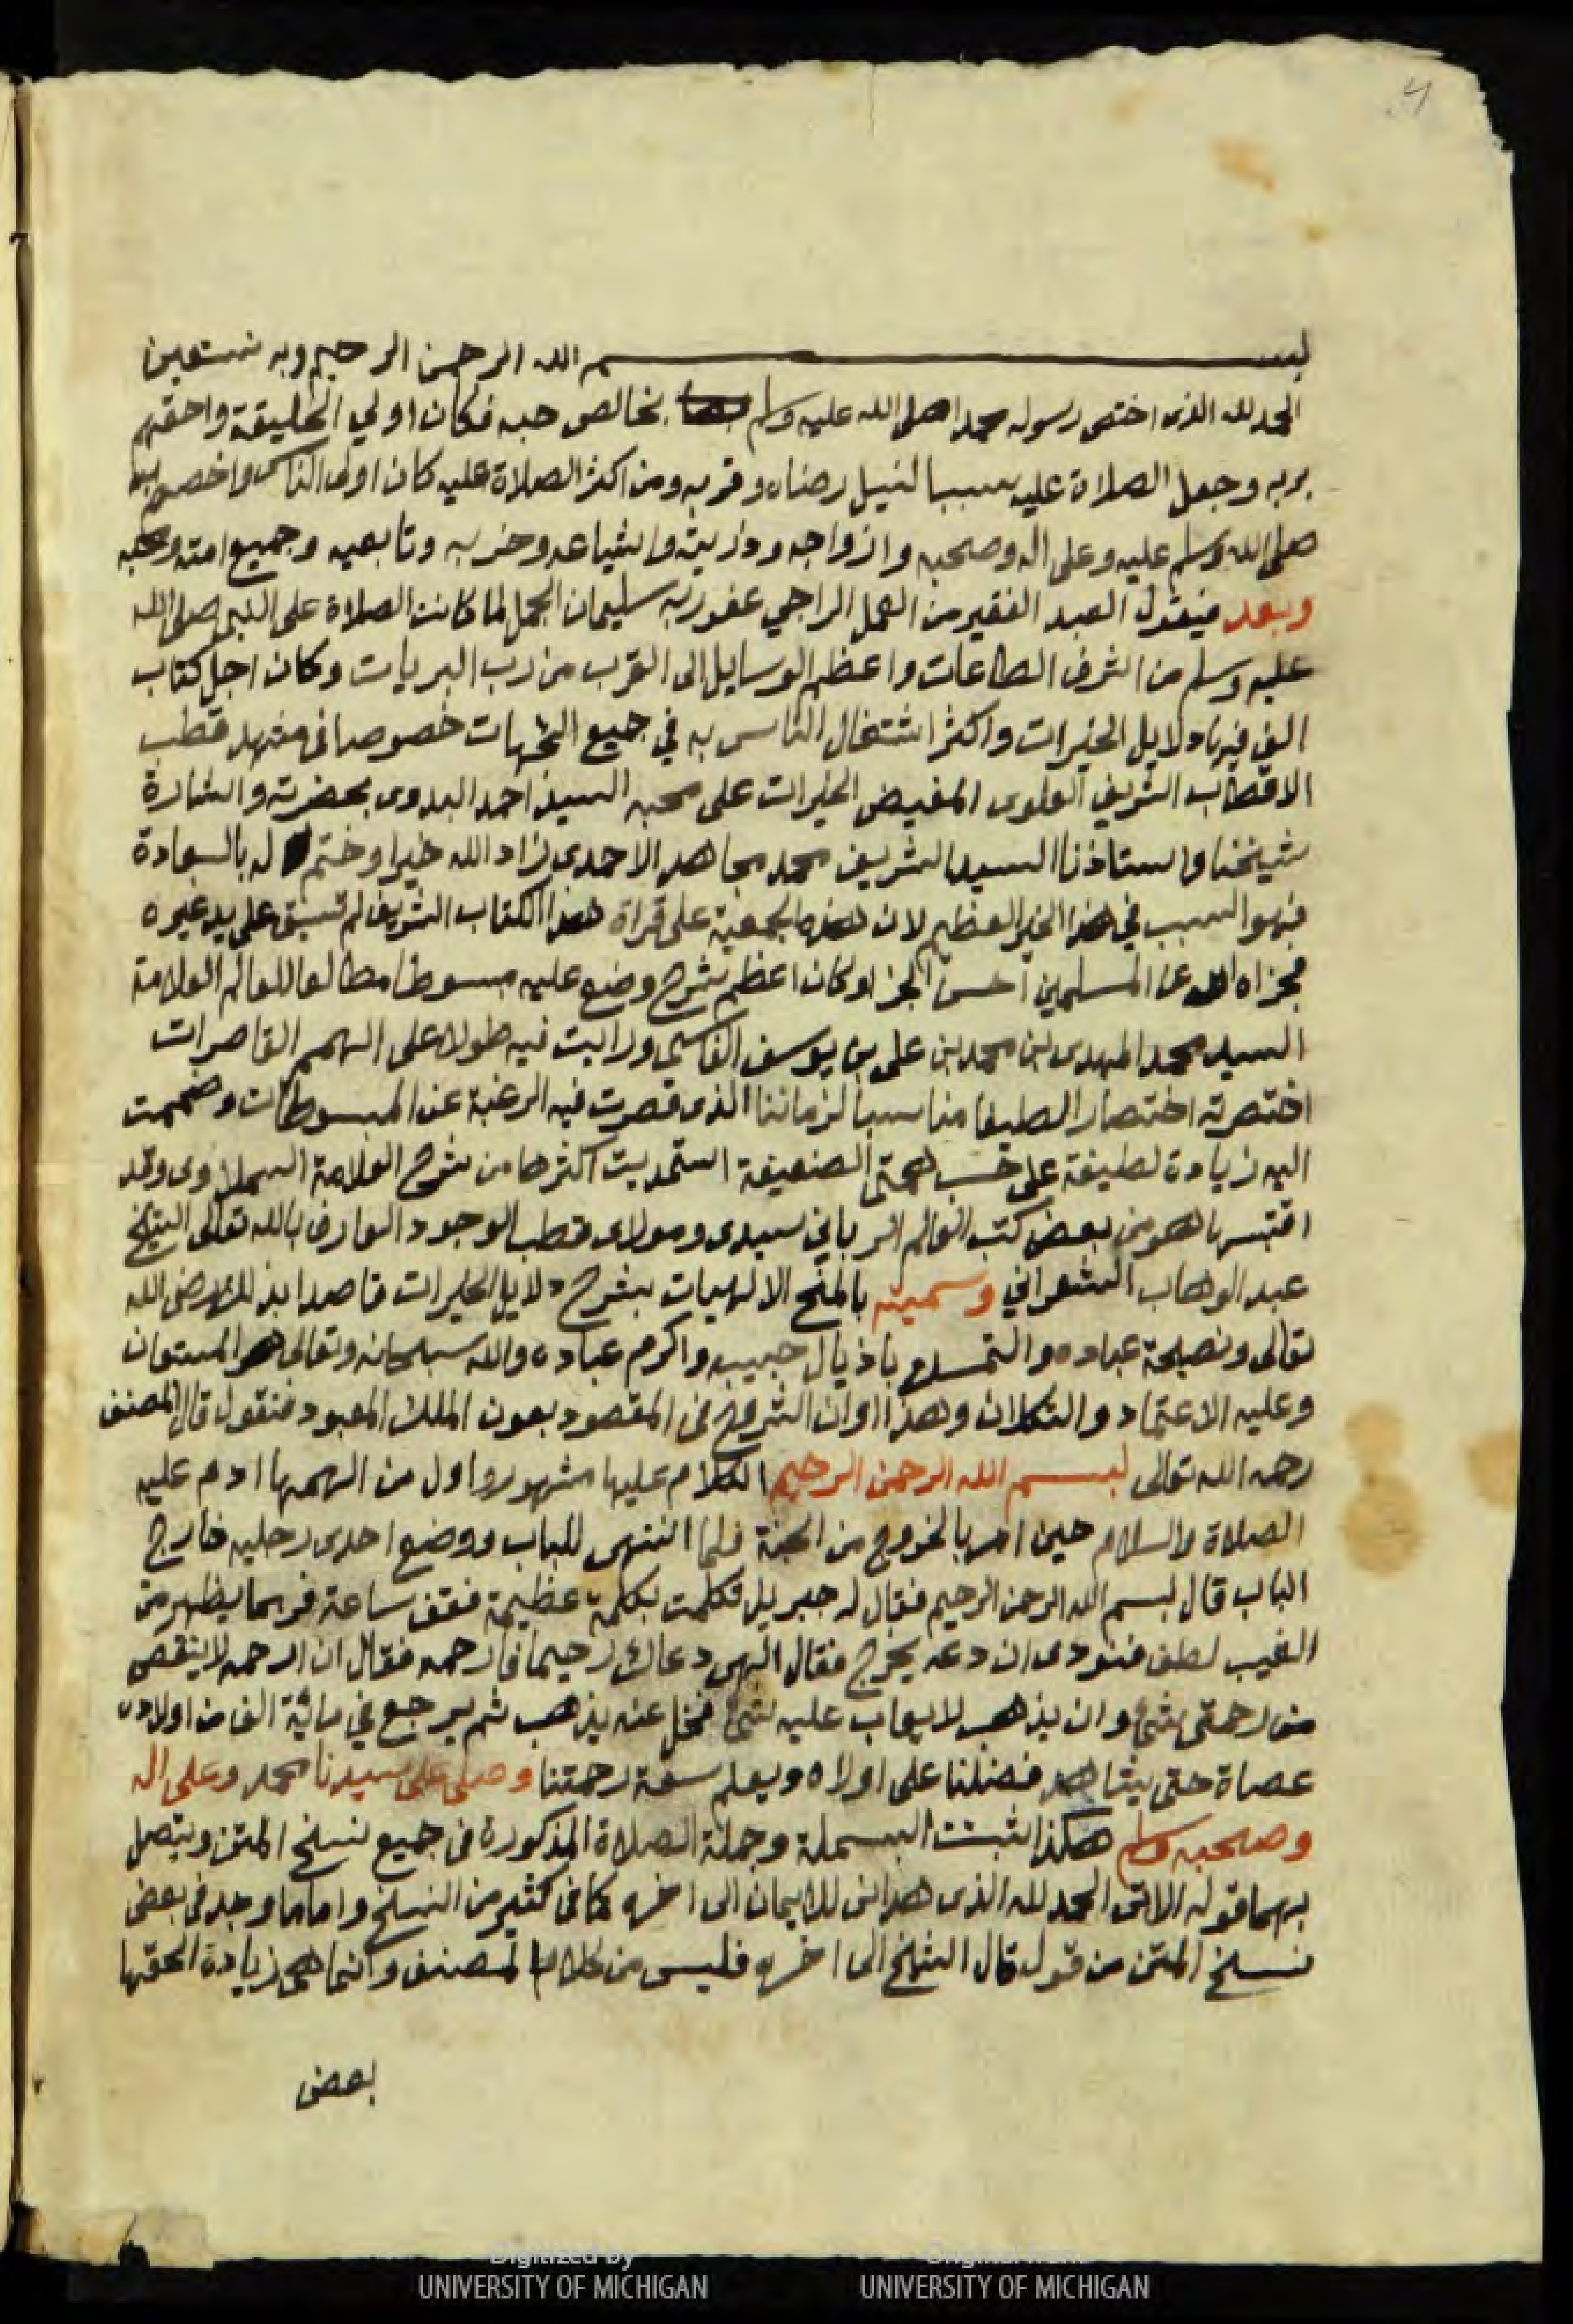 4
بسم الله الرحمن الرحيم وبه نستعين
الحمد لله الذى اختص رسوله محمدا صلى الله عليه وسلم بخالص حبه فكان اولي الخليقة واحقهم
بربه وجعل الصلاة عليه سببا لنيل رضاه وقربه ومن اكثر الصلاة عليه كان اولى الناس واخصهم به
صلى الله وسلم عليه وعلى اله وصحبه وازواجه وذريته واشياعه وحزبه وتابعيه وجميع امته ومحبه
وبعد فيقول العبد الفقير من العمل الراجي عفو ربه سليمان الجمل لما كانت الصلاة على النبي صلى الله
عليه وسلم من اشرف الطاعات واعظم الوسايل الى القرب من رب البريات وكان اجل كتاب
الف فيها دلايل الخيرات واكثر اشتغال الناس به في جميع الجهات خصوصا فى مشهد قطب
الاقطاب الشريف العلوى المفيض الخيرات على محبه السيد احمد البدوى بحضرته واشارة
شيخنا واستاذنا السيد الشريف محمد مجاهد الاحمدى زاد الله خيرا وختم له بالسعادة
فهو السبب في هذا الخير العظيم لان هذه الجمعية على قراة هذا الكتاب الشريف لم تسبق على يد غيره
فجزاه الله عن المسلمين احسن الجزا وكان اعظم شرح وضع عليه مبسوطا مطالعا للعالم العلامة
السيد محمد المهدى بن محمد بن على بن يوسف الفاسى ورايت فيه طولا على الهمم القاصرات
اختصرته اختصارا لطيفا مناسبا لزماننا الذى قصرت فيه الرغبة عن المبسوطات وضممت
اليه زيادة لطيفة على حسب همتى الضعيفة استمديت اكثرها من شرح العلامة السملاوى وقد
اقتبسها هو من بعض كتب العالم الربانى سيدى ومولاى قطب الوجود العارف بالله تعالى الشيخ
عبد الوهاب الشعرانى وسميته بالمنح الالهيات بشرح دلايل الخيرات قاصدا بذلك رضى الله
تعالى ونصيحة عباده والتمسك باذيال حبيبه واكرم عباده والله سبحانه وتعالى هو المستعان
وعليه الاعتماد والتكلان وهذا اوان الشروع فى المقصود بعون الملك المعبود فنقول قال المصنف
رحمه الله تعالى بسم الله الرحمن الرحيم الكلام عليها مشهور واول من الهمها ادم عليه
الصلاة والسلام حين امر بالخروج من الجنة فلما انتهى للباب ووضع احدى رجليه خارج
الباب قال بسم الله الرحمن الرحيم فقال له جبريل تكلمت بكلمة عظيمة فقف ساعة فربما يظهر من
الغيب لطف فنودى ان دعه يخرج فقال الهى دعاك رحيما فارحمه فقال ان ارحمه لا ينقص
من رحمتى شئ وان يذهب لا يعاب عليه شئ فخل عنه يذهب ثم يرجع في ماية الف من اولاده
عصاة حتى يشاهد فضلنا على اولاده ويعلم سعة رحمتنا وصلى على سيدنا محمد وعلى اله
وصحبه وسلم هكذا ثبتت البسملة وجملة الصلاة المذكورة فى جميع نسخ المتن ويتصل
بهما قوله الاتى الحمد لله الذى هدانى للايمان الى اخره كما فى كثير من النسخ واما ما وجد فى بعض
نسخ المتن من قوله قال الشيخ الى اخره فليس من كلام المصنف وانما هى زيادة الحقها
بعض
Digitized by
UNIVERSITY OF MICHIGAN
UNIVERSITY OF MICHIGAN